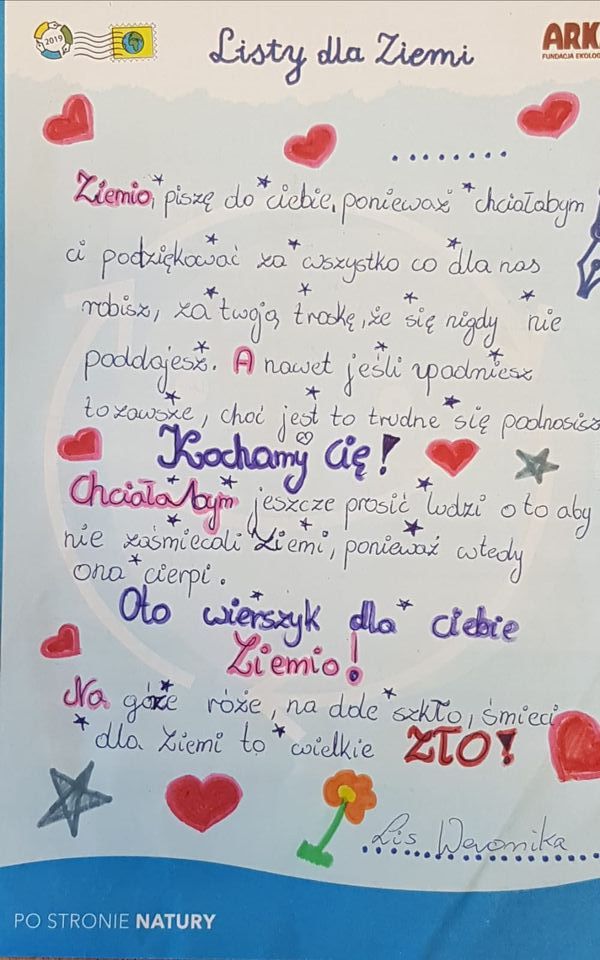 2019
Listy dla Ziemi
ARK
FUNDACJA EKOLOG
Ziemio, piszę do ciebie, ponieważ chciałabym
ci podziękować za wszystko co dla nas
robisz, za twoją troskę, że się nigdy nie
poddajesz. A nawet jeśli upadniesz
to zawsze, choć jest to trudne się podnosisz
Kochamy cię!
Chciałabym jeszcze prosić ludzi o to aby
nie zaśmiecali Ziemi, ponieważ wtedy
ona cierpi.
Oto wierszyk dla ciebie
Ziemio!
Na górze róże, na dole szkło, śmieci
dla Ziemi to wielkie ZŁO!
Lis Weronika
PO STRONIE NATURY